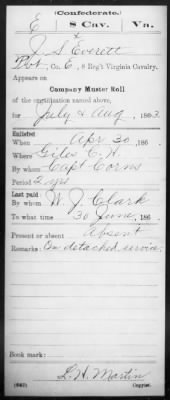 (Confederate.)
E 8 Cav. Va.
J S Everett
Pvt, Co. E, 8 Reg't Virginia Cavalry.
Appears on
Company Muster Roll
of the organization named above,
for July & Aug, 1863.
Enlisted
When Apr 30, 186
Where Giles C. H.
By whom Capt Corns
Period 2 yrs
Last paid:
By whom W. J. Clark
To what time 30 June, 186
Present or absent Absent
Remarks: On detached service.
Book mark:
L. H. Martin
(642) Copyist.